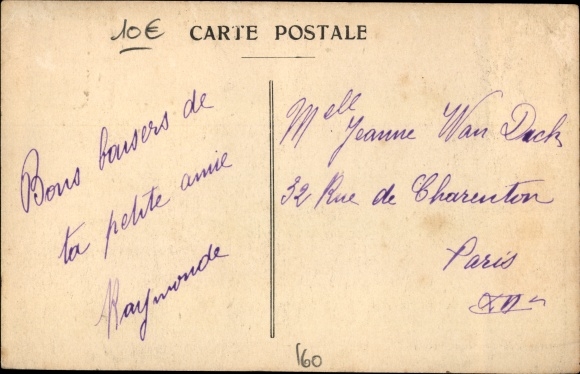 10€
CARTE POSTALE
Bons baisers de
ta petite amie
Raymonde
Melle Jeanne Wan Dack
32 Rue de Charenton
Paris
160